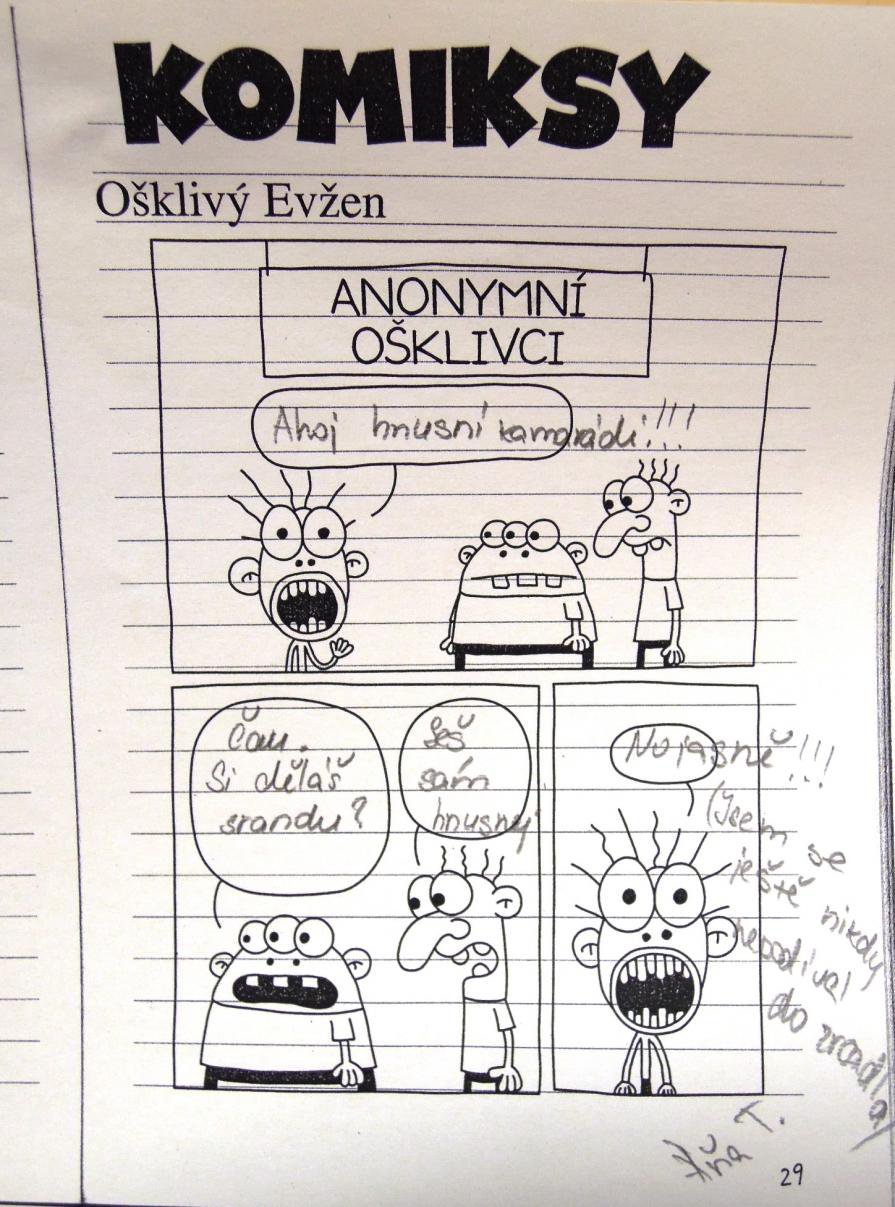 KOMIKSY
Ošklivý Evžen
ANONYMNÍ
OŠKLIVCI
Ahoj hnusní kamarádi!!!
Čau.
Si děláš
srandu?
Seš
sám
hnusnej
No jasně!!!
(Jsem se
ještě nikdy
nepodíval
do zrcadla)
T.
29